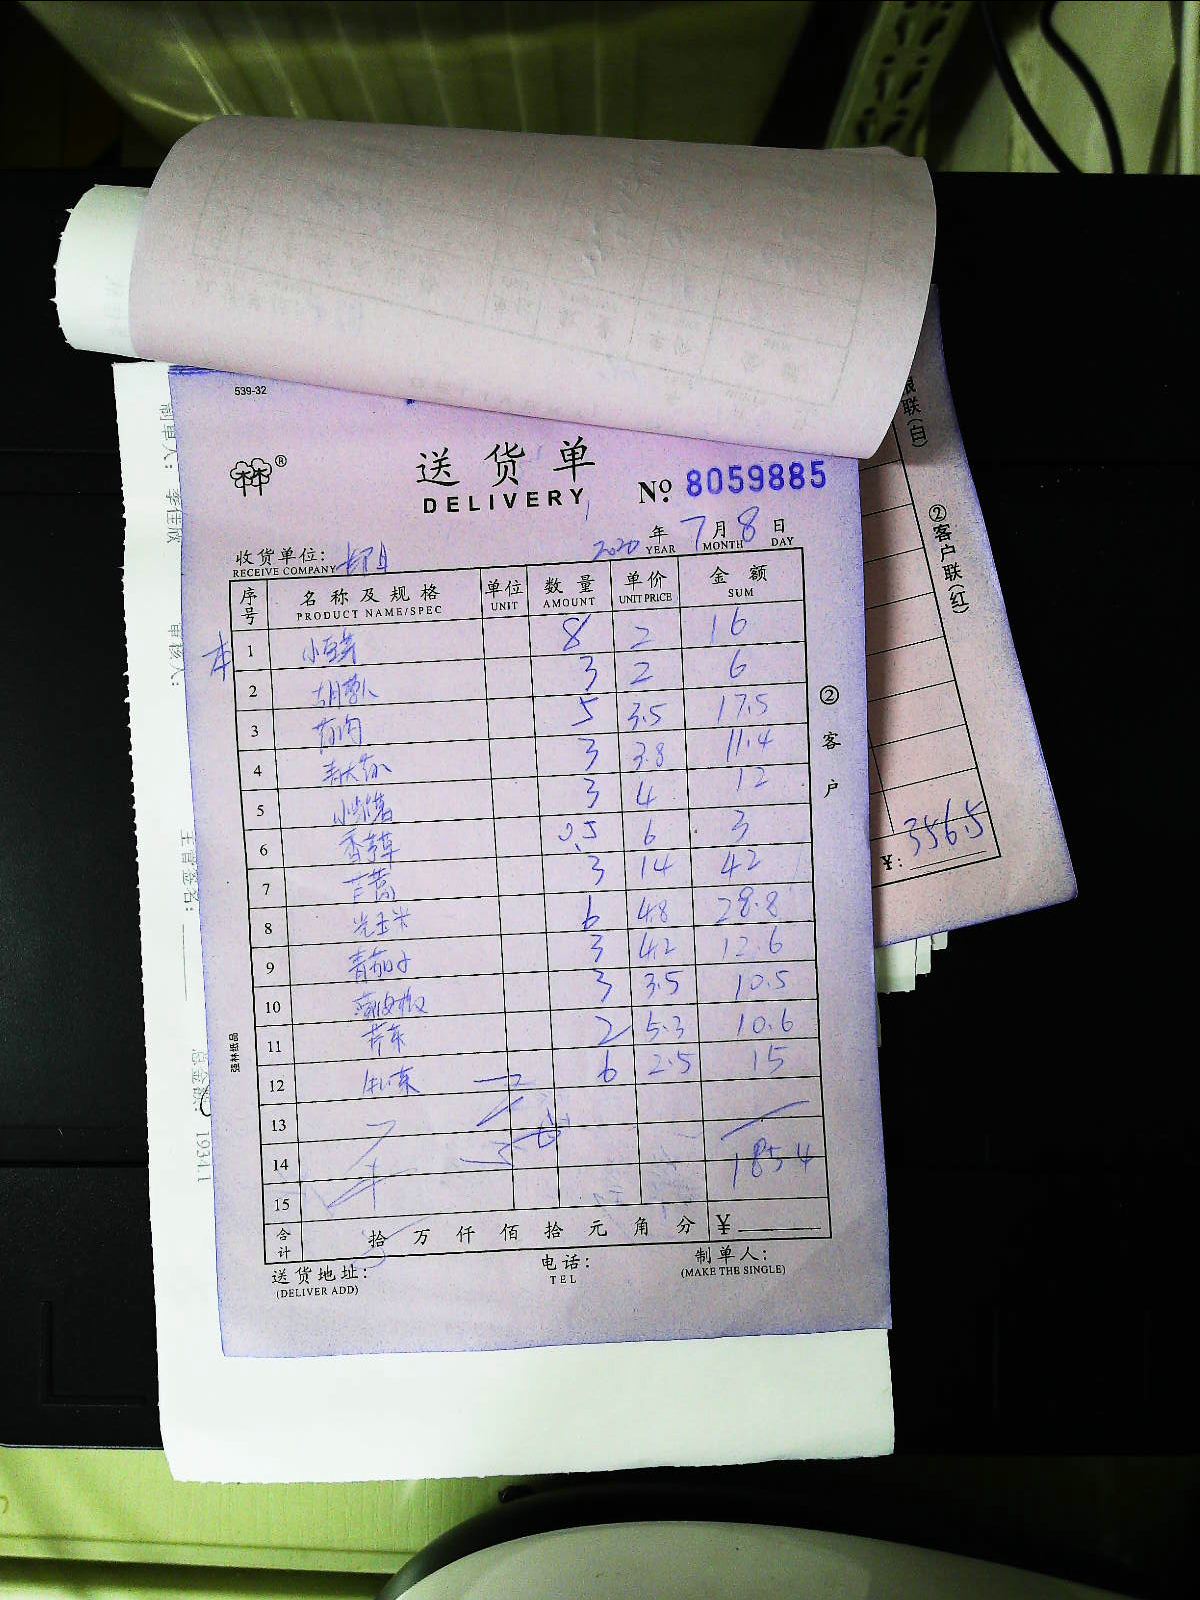 539-32
林林®
送货单
DELIVERY
No. 8059885
收货单位:
RECEIVE COMPANY
2020 年 7 月 8 日
YEAR MONTH DAY
序号 名称及规格 单位 数量 单价 金额
PRODUCT NAME/SPEC UNIT AMOUNT UNIT PRICE SUM
1 小豆芽 8 2 16
2 胡萝卜 3 2 6
3 5 3.5 17.5
4 3 3.8 11.4
5 3 4 12
6 香芹 0.5 6 3
7 茼蒿 3 14 42
8 玉米 6 4.8 28.8
9 青茄子 3 4.2 12.6
10 3 3.5 10.5
11 2 5.3 10.6
12 6 2.5 15
13
14 185.4
15
合计 拾 万 仟 佰 拾 元 角 分 ¥
送货地址:
(DELIVER ADD)
电话:
TEL
制单人:
(MAKE THE SINGLE)
②客户
强林纸品
联(白)
②客户联(红)
¥: 356.5
制单人: 李佳欣
审核人:
主管签名:
总金额: 1934.1